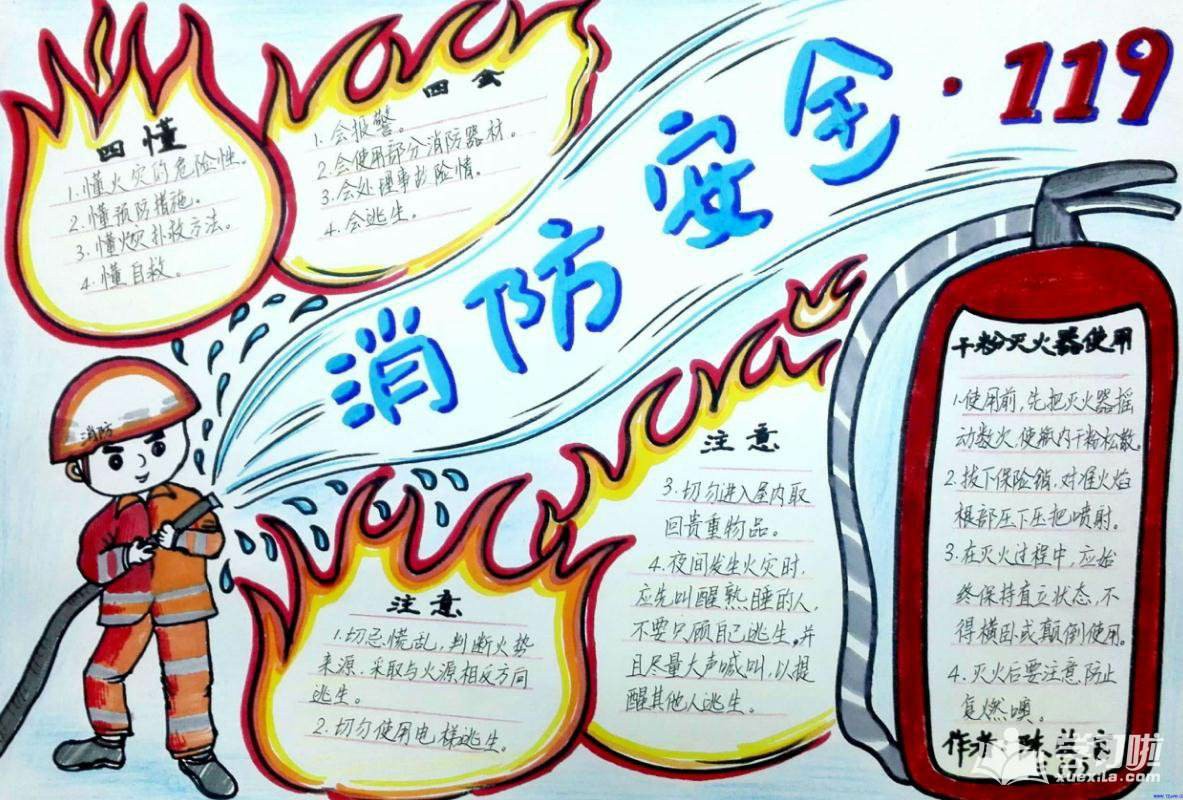 消防安全·119
四懂
1.懂火灾的危险性。
2.懂预防措施。
3.懂火灾扑救方法。
4.懂自救。
四会
1.会报警。
2.会使用部分消防器材。
3.会处理事故险情。
4.会逃生。
消防
注意
1.切忌慌乱,判断火势
来源.采取与火源相反方向
逃生。
2.切勿使用电梯逃生。
注意
3.切勿进入屋内取
回贵重物品。
4.夜间发生火灾时,
应先叫醒熟睡的人,
不要只顾自己逃生。并
且尽量大声喊叫,以提
醒其他人逃生。
干粉灭火器使用
1.使用前,先把灭火器摇
动数次,使瓶内干粉松散。
2.拔下保险销,对准火焰
根部压下压把喷射。
3.在灭火过程中,应始
终保持直立状态,不
得横卧或颠倒使用。
4.灭火后要注意防止
复燃噢。
作者:陈
学习啦
xuexila.com